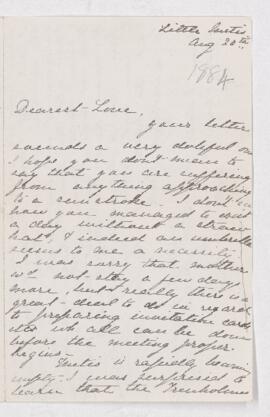 Little Metis
Aug 20th
1884
Dearest Love,
your letter
sounds a very doleful one
I hope you don't mean to
say that you are suffering
from anything approaching
to a sunstroke. I don't
how you managed to exist
a day without a straw
hat, & indeed an umbrella
seems to me a necessity.
I was sorry that mother
wd not stay a few days
more, but really there is a
great deal to do in regard
to preparing invitation cards
etc wh all can be done
before the meeting proper
begins.
Metis is rapidly becoming
empty. I was surprised to
learn that the Trenholmes